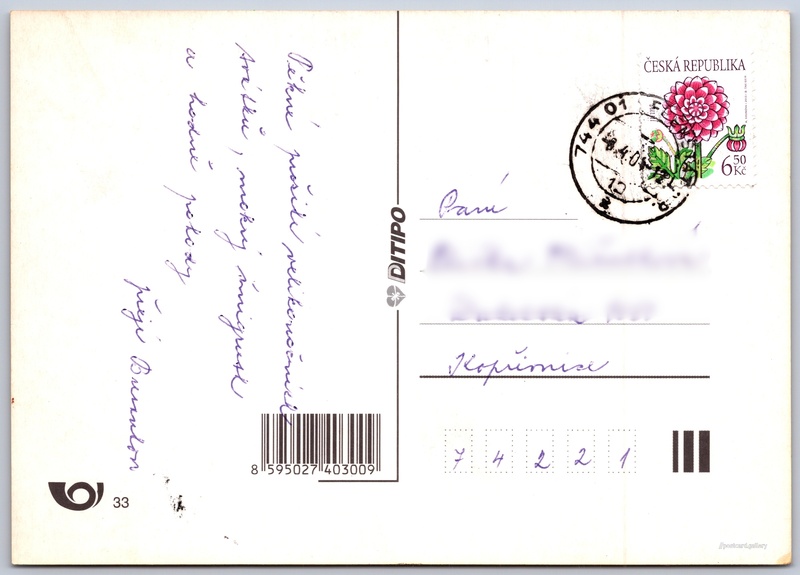 Pěkné prožití velikonočních
svátků, mokrý šmigrust
a hodně pohody
přejí
ČESKÁ REPUBLIKA
6 50
Kč
744 01
Paní
Kopřivnice
7 4 2 2 1
DITIPO
8 595027 403009
33